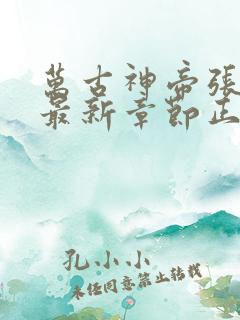 萬古神帝張
最新章節正
孔小小
未经同意禁止转载